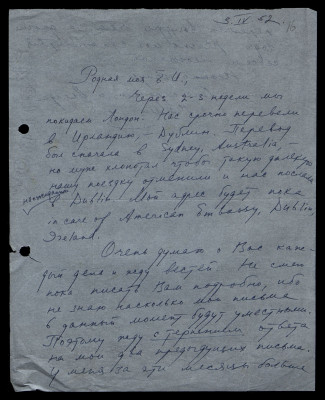 3. IX 62
Родная моя Е. И.,
Через 2-3 недели мы
покидаем Лондон: Нас срочно перевели
в Ирландию, — Дублин. Перевод
был сначала в Sydney, Australia, —
но муж хлопотал чтобы такую далекую
нашу поездку отменили и нас послали
в Dublin. Мой адрес будет пока
in care of American Embassy, Dublin,
Ireland.
Очень думаю о Вас каж-
дый день и жду вестей. Не смею
пока писать Вам подробно, ибо
не знаю насколько мои письма
в данный момент будут уместными.
Поэтому жду с терпением ответа
на мои два предыдущих письма.
У меня за эти месяцы большие